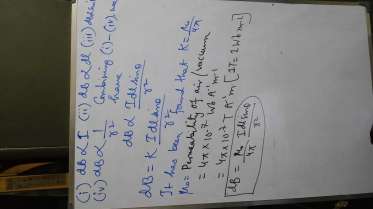 (i) dB ∝ I (ii) dB ∝ dl (iii) dB ∝ sinθ
(iv) dB ∝ 1/r² Combining (i)-(iv), we
have
dB ∝ Idlsinθ/r²
dB = K Idlsinθ/r²
It has been found that K = μ₀/4π
μ₀ = Permeability of air/vacuum
= 4π×10⁻⁷ Wb A⁻¹m⁻¹
= 4π×10⁻⁷ T A⁻¹m [1T = 1Wb m⁻²]
dB = μ₀/4π Idlsinθ/r²